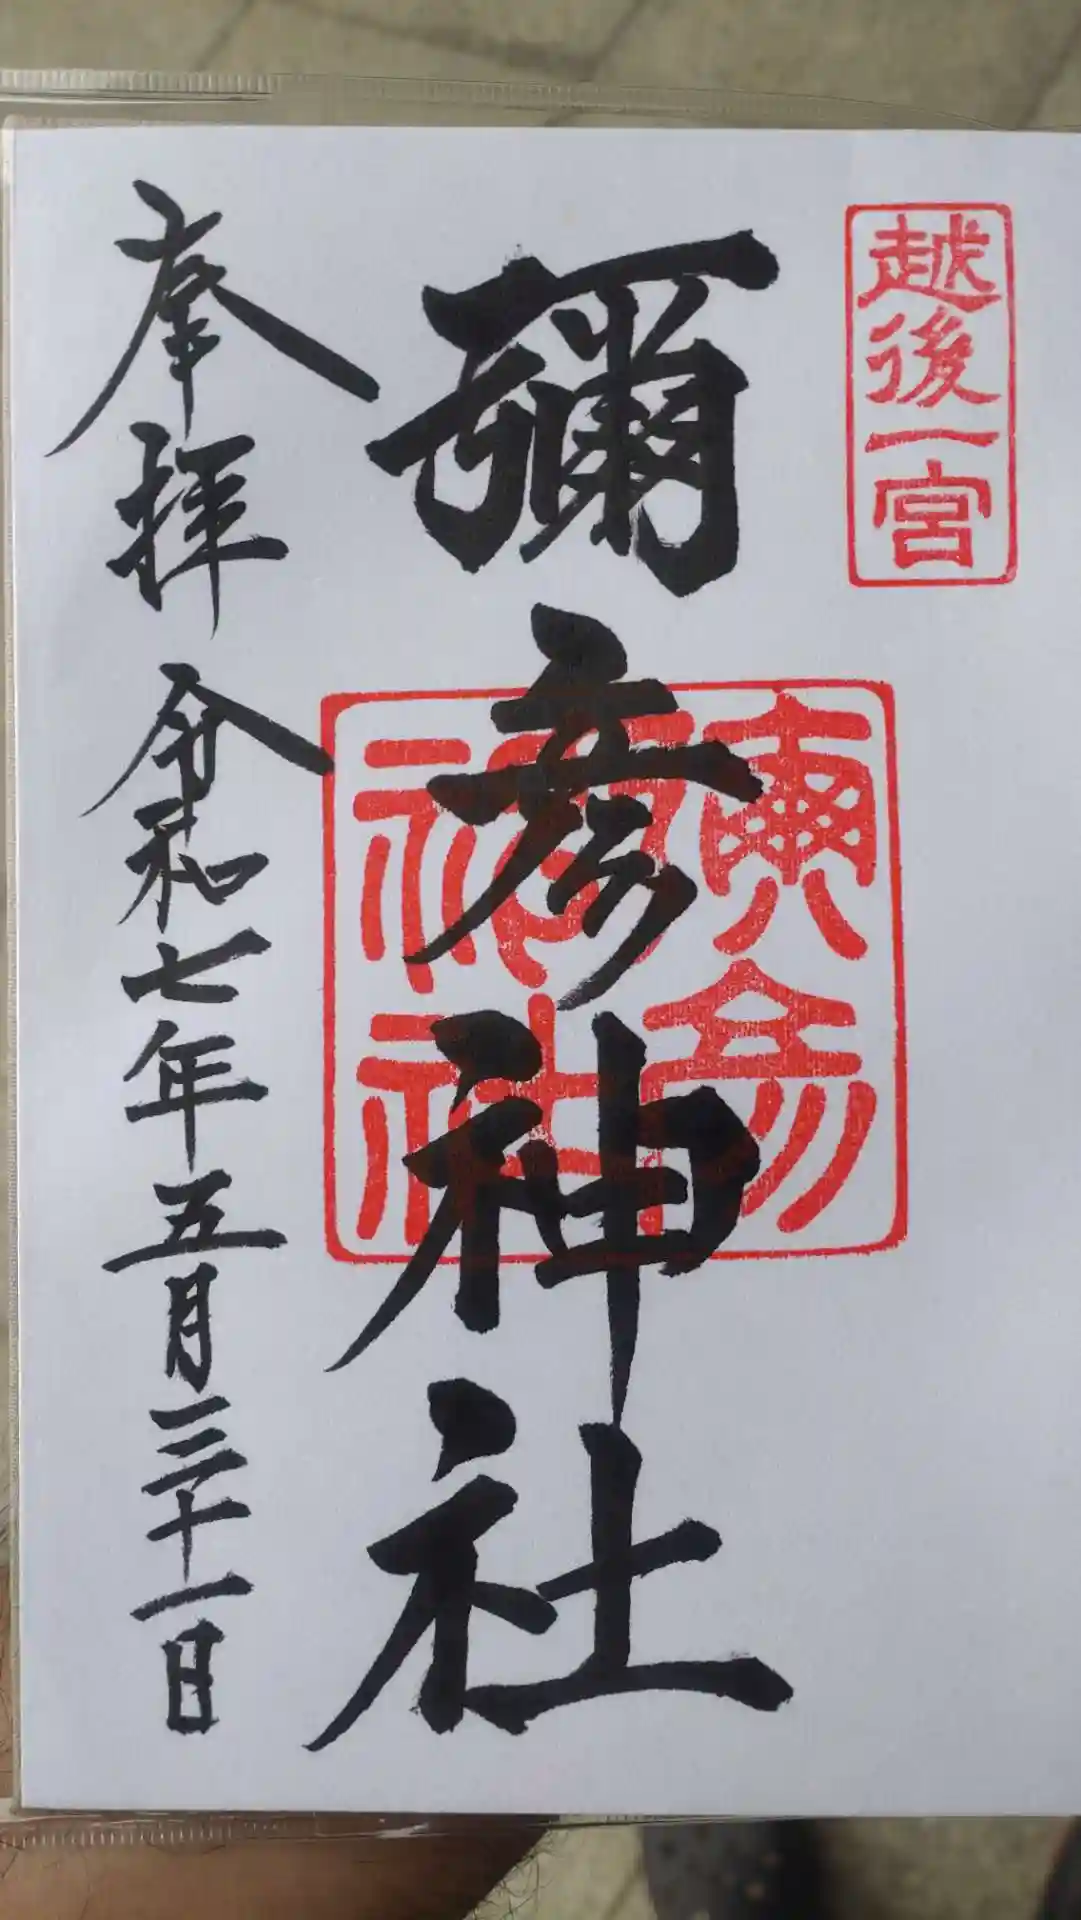 越後一宮
彌彦神社
奉拝
令和七年五月三十一日